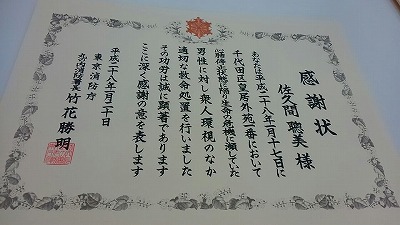 感謝状
佐久間 聰美 様
あなたは平成二十八年二月十七日に
千代田区皇居外苑一番において
心肺停止状態に陥り生命の危機に瀕していた
男性に対し衆人環視のなか
適切な救命処置を行いました
その功労は誠に顕著であります
ここに深く感謝の意を表します
平成二十八年二月二十日
東京消防庁
丸の内消防署長 竹花勝明